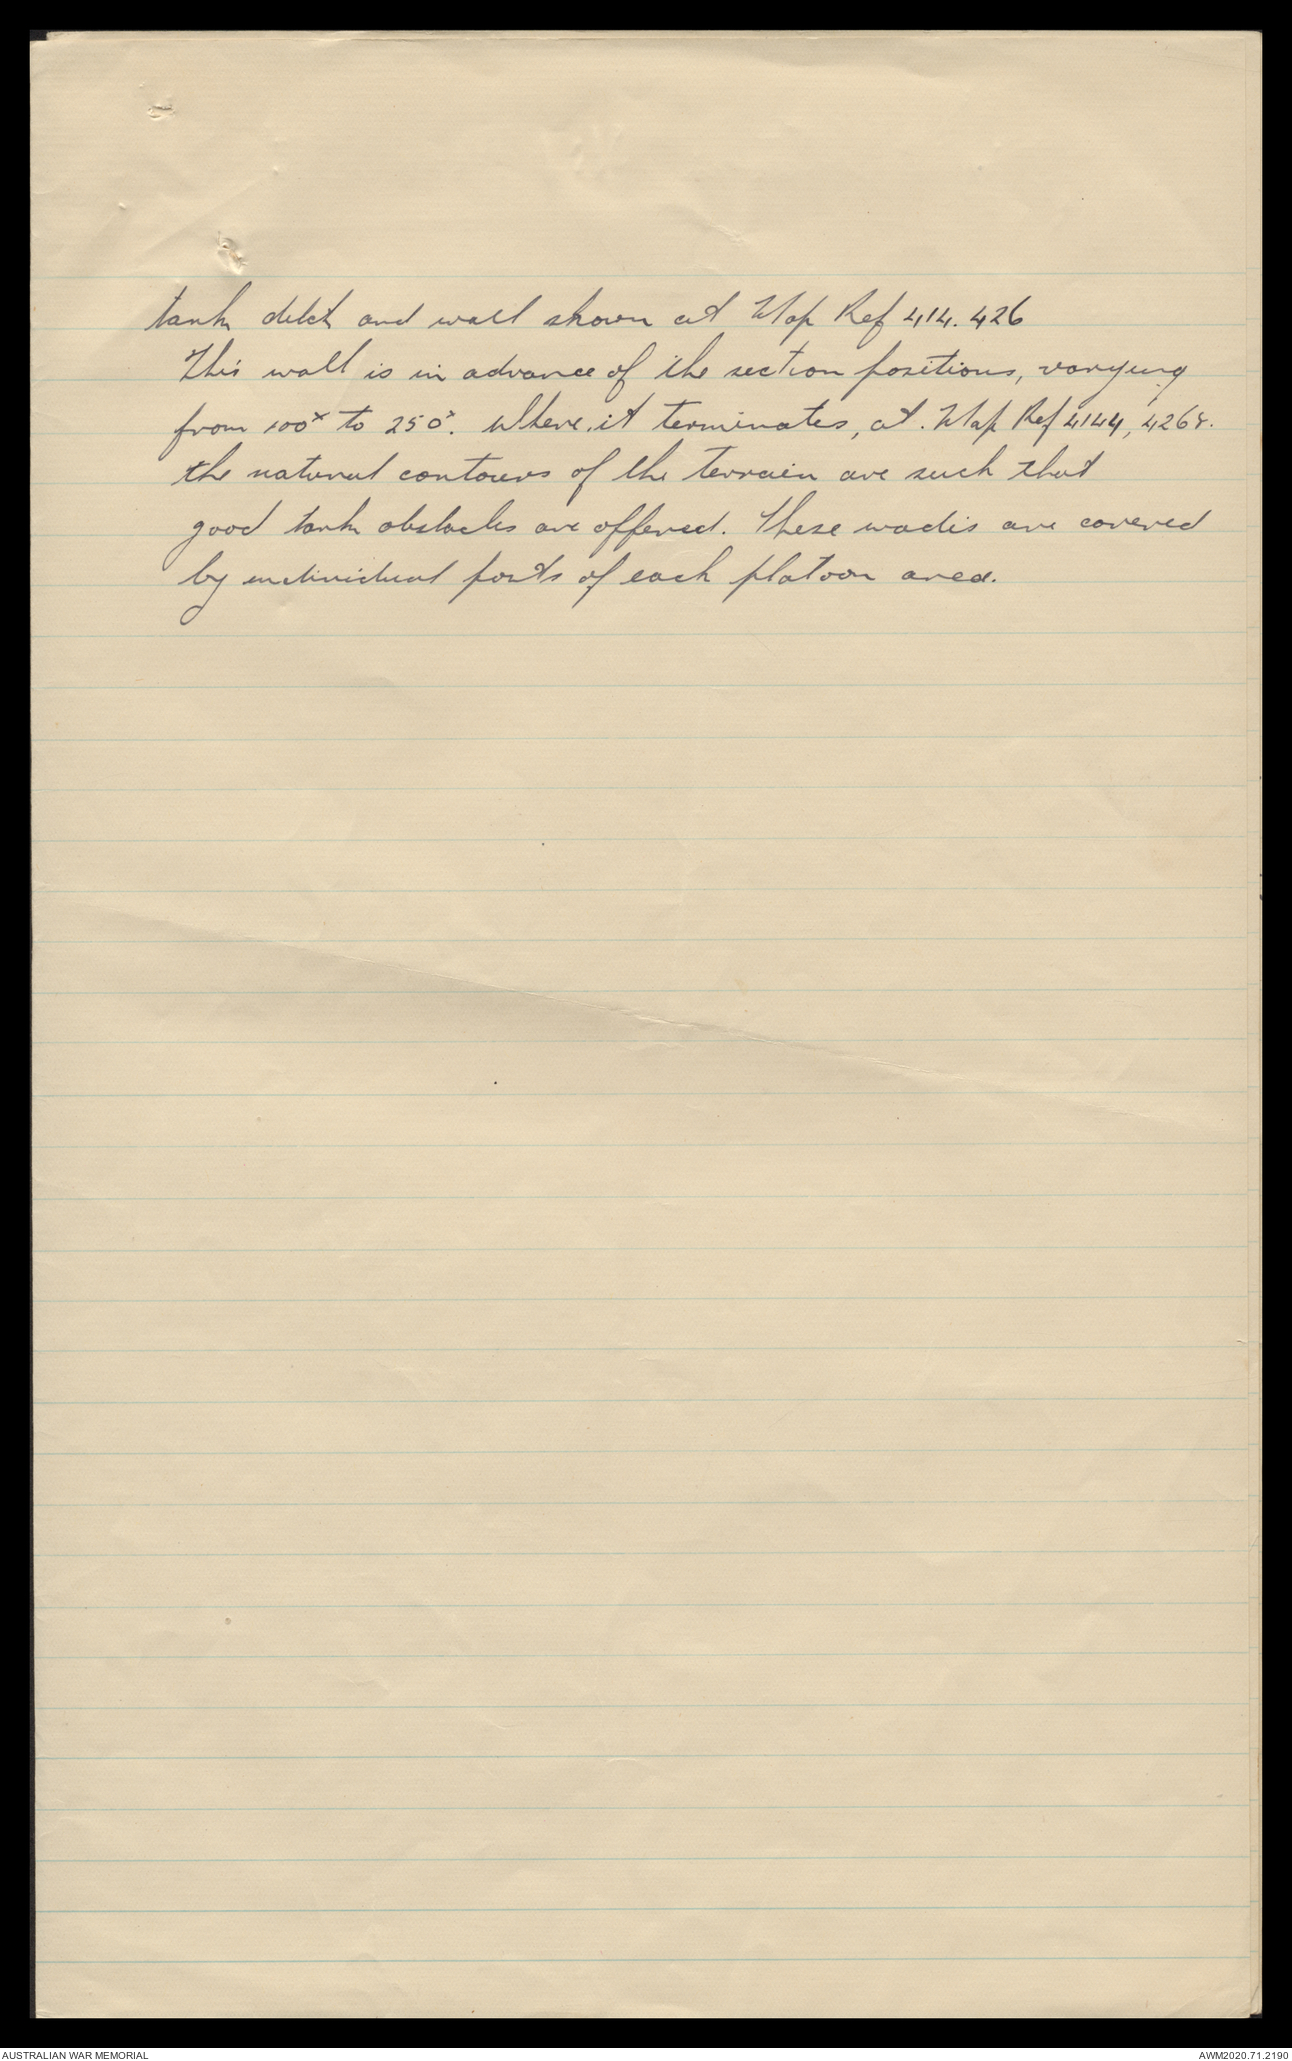 tank ditch and wall shown at Map Ref 414.426
This wall is in advance of the section positions, varying
from 100ˣ to 250ˣ. Where it terminates, at. Map Ref 4144, 4268.
the natural contours of the terrain are such that
good tank obstacles are offered. These wadis are covered
by individual posts of each platoon area.
AUSTRALIAN WAR MEMORIAL
AWM2020.71.2190